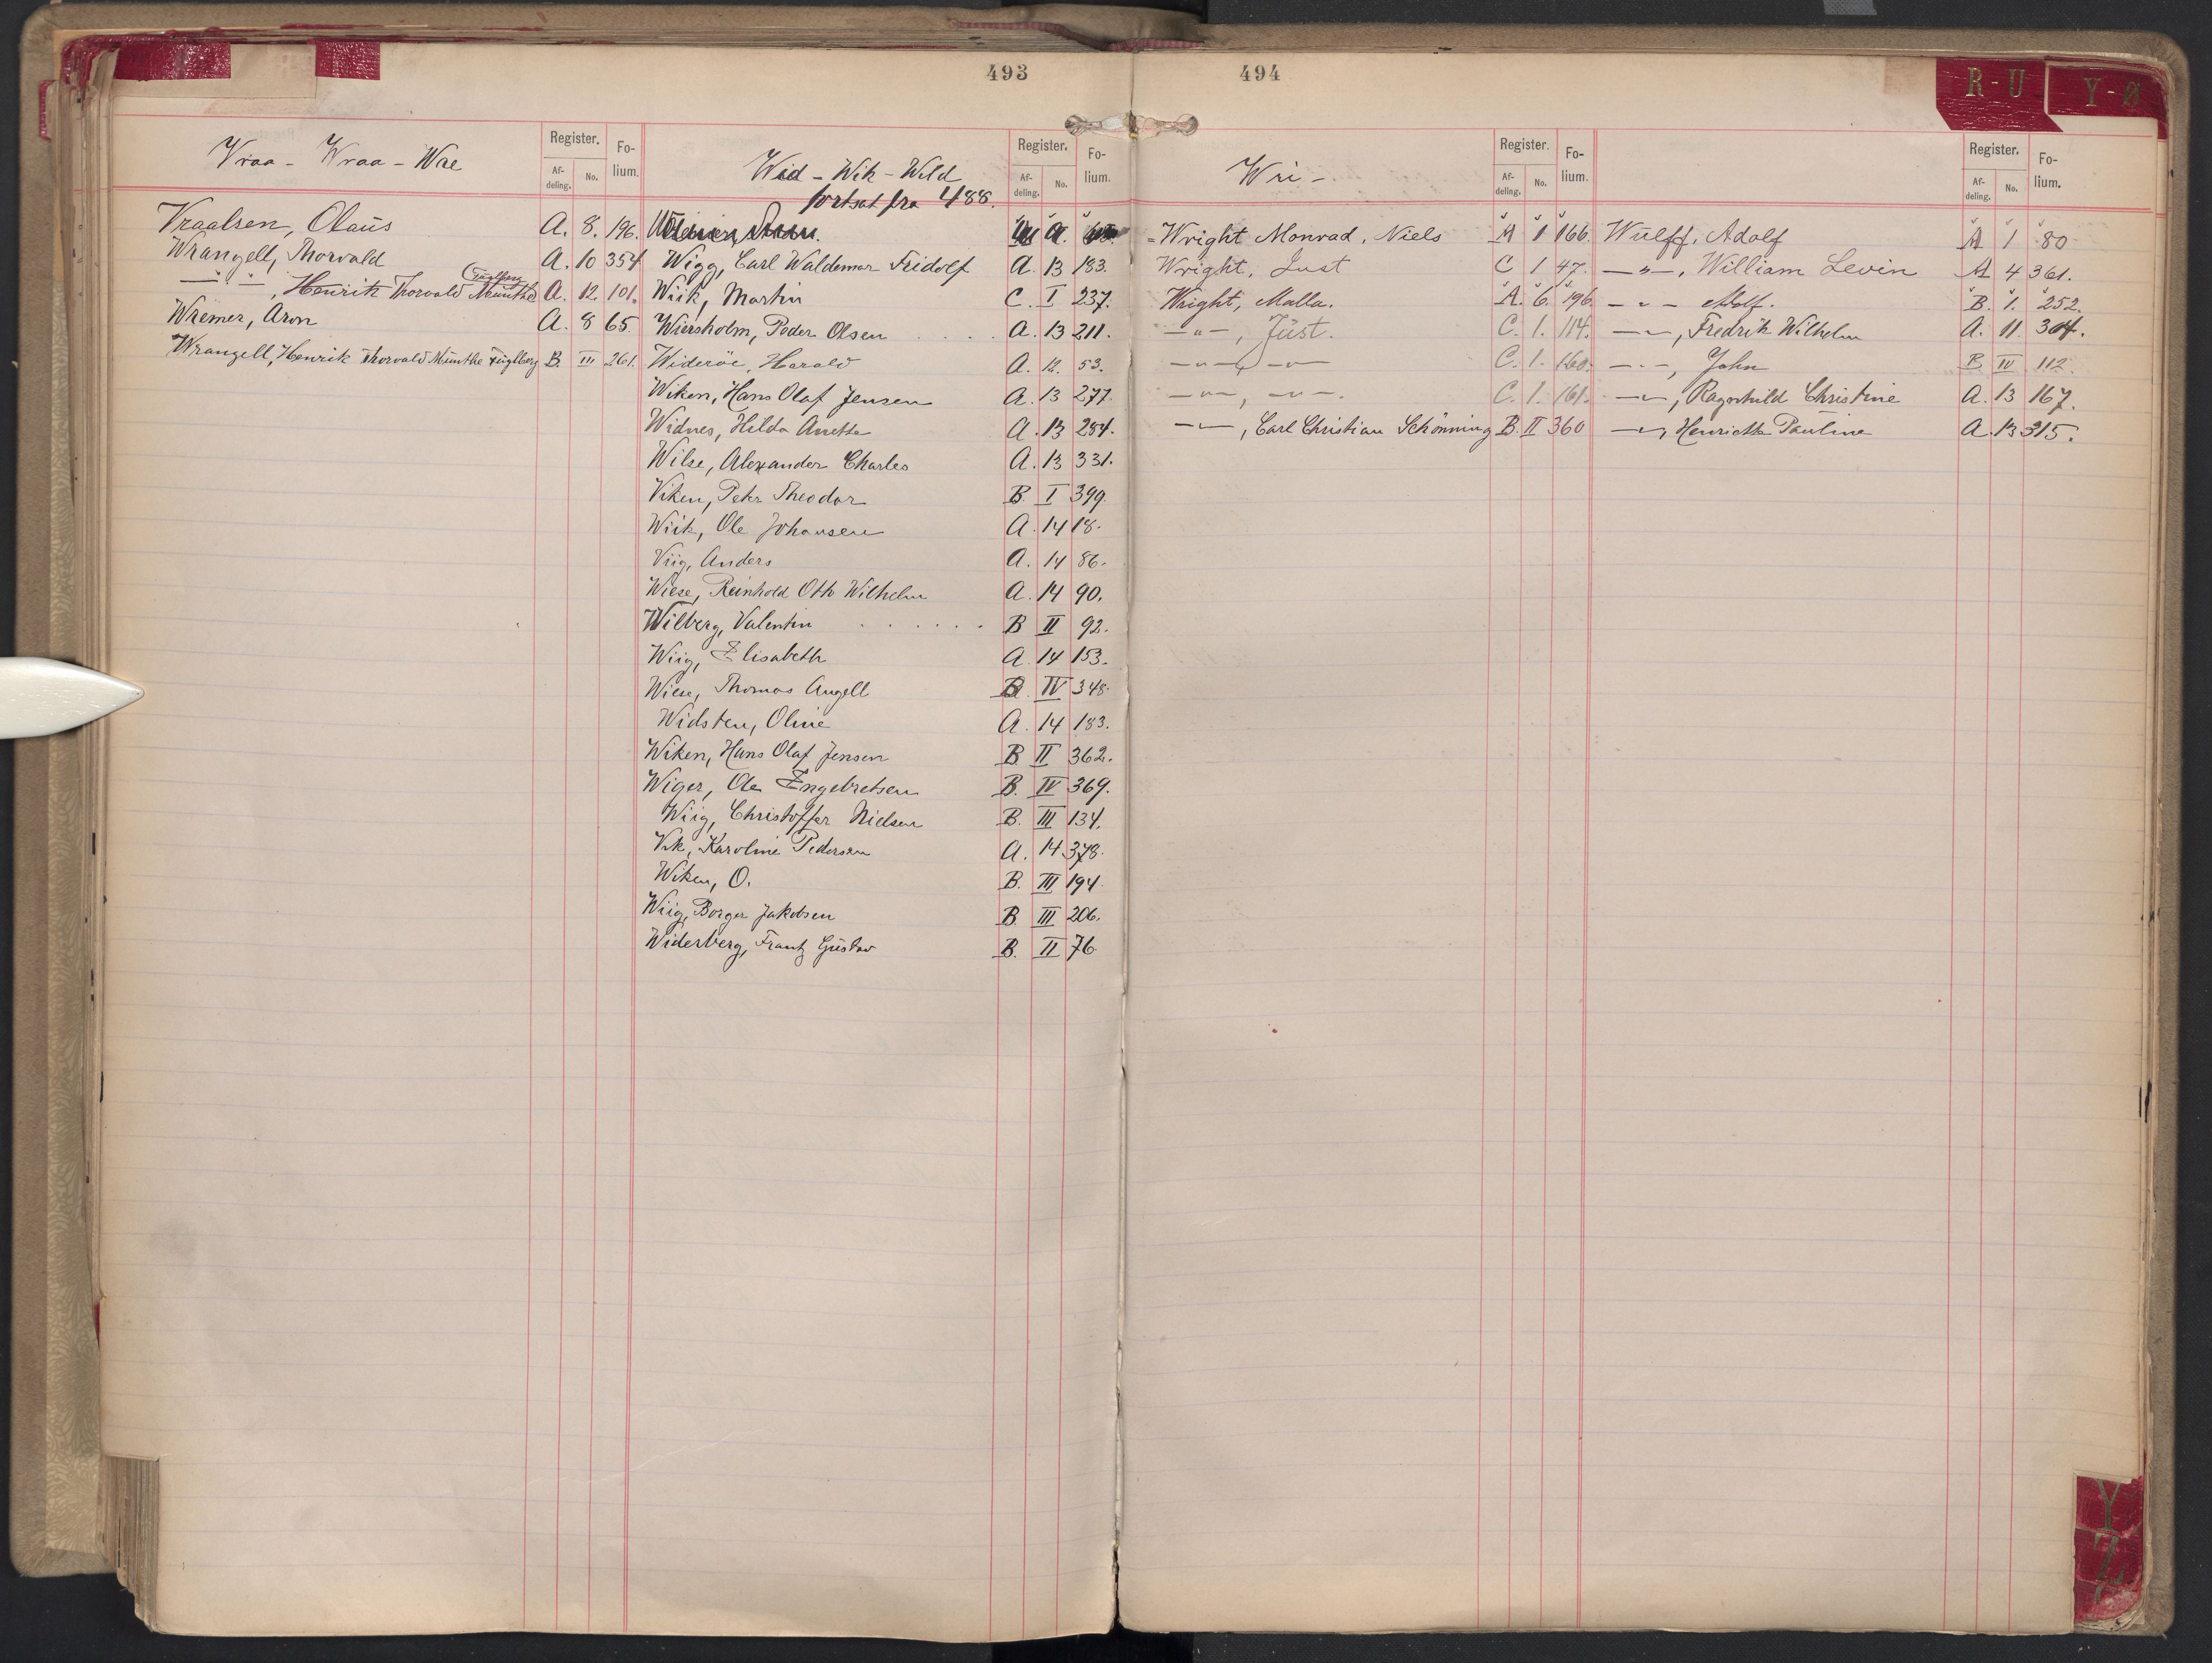 493
Vraa - Wraa - Wre
Register. Fo-lium.
Af-deling. No.
Vraalsen, Olaus A. 8. 196.
Wrangell, Thorvald A. 10 354
(Fuglberg
—"—, Henrik Thorvald Munthe A. 12. 101.
Wremer, Aron A. 8 65
Wrangell, Henrik Thorvald Munthe Fuglberg B. III 261.
Wid - Wik - Wild
fortsat fra 488.
Register. Fo-lium.
Af-deling. No.
Wigg, Carl Waldemar Fridolf A. 13 183.
Wiik, Martin C. I 237.
Wiersholm, Peder Olsen . . . . A. 13 211.
Wideröe, Harald A. 12. 53.
Wiken, Hans Olaf Jensen A. 13 277.
Widnes, Hilda Anette A. 13 284.
Wilse, Alexander Charles A. 13 331.
Viken, Peter Theodor B. I 399.
Wiik, Ole Johansen A. 14 18.
Viig, Anders A. 14 86.
Wiese, Reinhold Otto Wilhelm A. 14 90.
Wilberg, Valentin . . . . . . B II 92.
Wiig, Elisabeth A. 14 153.
Wiese, Thomas Angell B. IV 348.
Widsten, Oline A. 14 183.
Wiken, Hans Olaf Jensen B. II 362.
Wiger, Ole Engebretsen B. IV 369.
Wiig, Christoffer Nielsen B. III 134.
Vik, Karoline Pedersen A. 14 378.
Wiken, O. B. III 194.
Wiig, Borger Jakobsen B. III 206.
Widerberg, Frantz Gustav B. II 76.
494
R-U
Y-Ø
Wri -
Register. Fo-lium.
Af-deling. No.
Wright Monrad, Niels A 1 166.
Wright, Just C 1 47.
Wright, Malla. A. 6. 196.
—"—, Just. C. 1. 114.
—"—, —"— C. 1. 160.
—"—, —"—. C. 1. 161.
—"—, Carl Christian Schönning B. II 360
Register. Fo-lium.
Af-deling. No.
Wulff, Adolf A 1 80
—"—, William Levin A 4 361.
—"— Adolf. B. 1. 252.
—"—, Fredrik Wilhelm A. 11. 304.
—"—, John B IV 112.
—"—, Ragnhild Christine A. 13 167.
—"—, Henriette Pauline A. 13 315.
Y
Z